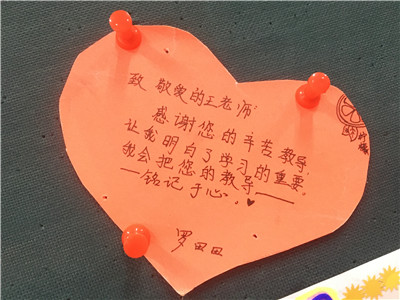 致 敬爱的王老师:
感谢您的辛苦教导.
让我明白了学习的重要.
我会把您的教导——
—铭记于心.
罗田田